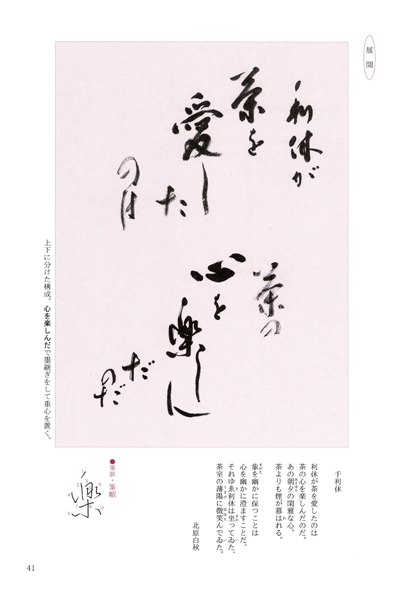 展開
利休が
茶を
愛し
た
のは
茶の
心を
楽しん
だ
のだ
上下に分けた構成。心を楽しんだで墨継ぎをして重心を置く。
千利休
利休が茶を愛したのは
茶の心を楽しんだのだ。
あの朝夕の閑雅な心。
茶よりも煙が慕はれる。
象を幽かに保つことは
心を幽かに澄ますことだ。
それゆゑ利休は坐つてゐた、
茶室の薄陽に微笑んでゐた。
北原白秋
●集訓・筆順
楽
41